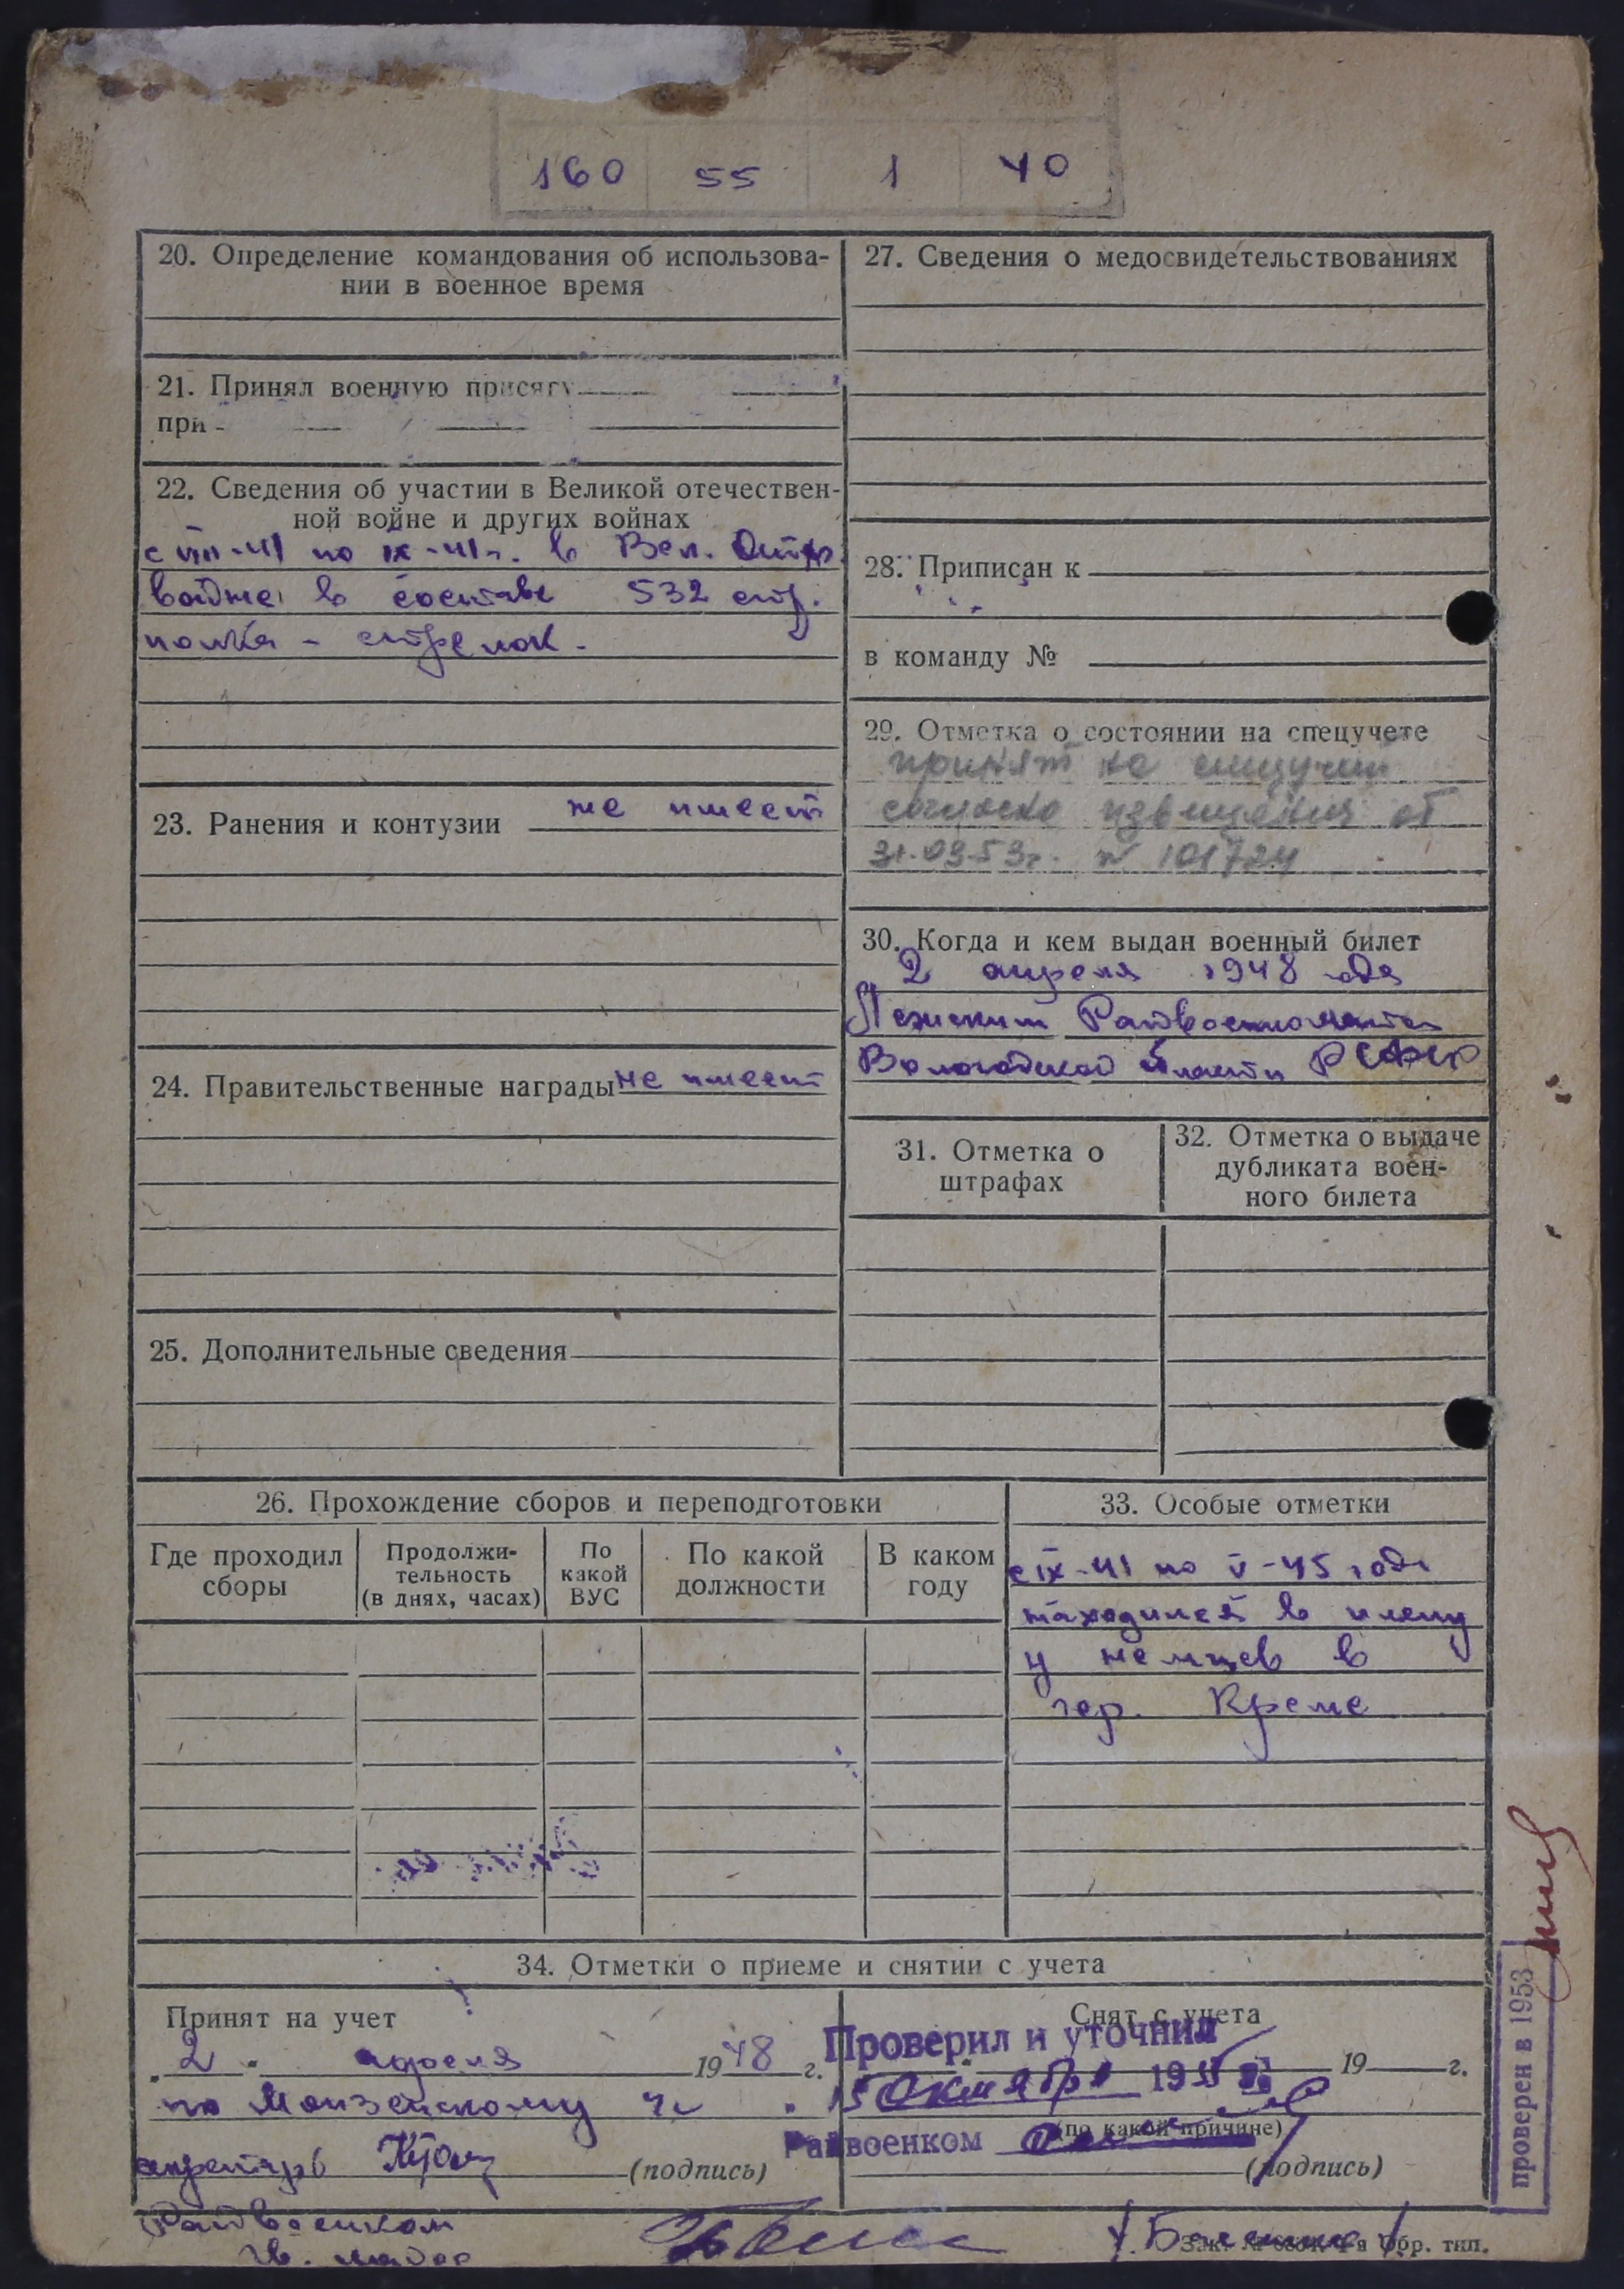 160 55 1 40
20. Определение командования об использова-
нии в военное время
21. Принял военную присягу
при
22. Сведения об участии в Великой отечествен-
ной войне и других войнах
с VIII-41 по IX-41 г. в Вел. Отеч.
войне в составе 532 стр.
полка - стрелок.
23. Ранения и контузии не имеет
24. Правительственные награды не имеет
25. Дополнительные сведения
27. Сведения о медосвидетельствованиях
28. Приписан к
в команду №
29. Отметка о состоянии на спецучете
принят на спецучет
согласно извещения от
31.03.53г. № 101724
30. Когда и кем выдан военный билет
2 апреля 1948 года
Райвоенкоматом
Вологодской области РСФСР
31. Отметка о
штрафах
32. Отметка о выдаче
дубликата воен-
ного билета
26. Прохождение сборов и переподготовки
Где проходил
сборы
Продолжи-
тельность
(в днях, часах)
По
какой
ВУС
По какой
должности
В каком
году
33. Особые отметки
с IX-41 по V-45 года
находился в плену
у немцев в
гор. Кремс
34. Отметки о приеме и снятии с учета
Принят на учет
"2" апреля 1948 г.
по Монзенскому
секретарь
(подпись)
Райвоенком
гв. майор
Снят с учета
19 г.
Проверил и уточнил
"15 октября 195
Райвоенком
(по какой причине)
(подпись)
проверен в 1953
Обр. тип.